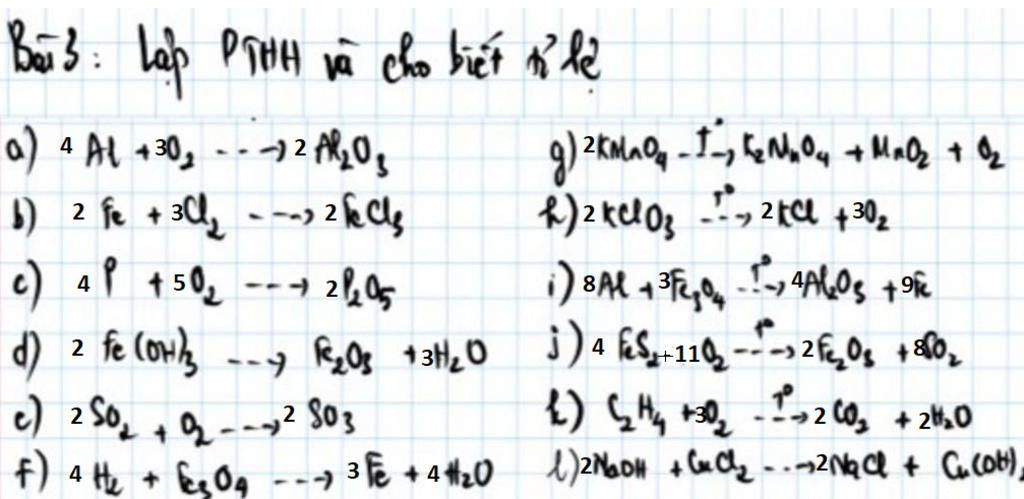 Bài 3: Lập PTHH và cho biết tỉ lệ
a) 4 Al + 3O₂ ---→ 2 Al₂O₃
b) 2 Fe + 3Cl₂ ---→ 2 FeCl₃
c) 4 P + 5O₂ ---→ 2P₂O₅
d) 2 Fe(OH)₃ ---→ Fe₂O₃ + 3H₂O
e) 2 SO₂ + O₂ ---→ 2 SO₃
f) 4 H₂ + Fe₃O₄ ---→ 3 Fe + 4 H₂O
g) 2KMnO₄ -T°-→ K₂MnO₄ + MnO₂ + O₂
h) 2 KClO₃ -T°-→ 2KCl + 3O₂
i) 8Al + 3Fe₃O₄ -T°-→ 4Al₂O₃ + 9Fe
j) 4 FeS₂ + 11O₂ -t°-→ 2Fe₂O₃ + 8SO₂
k) C₂H₄ + 3O₂ -T°-→ 2 CO₂ + 2H₂O
l) 2NaOH + CuCl₂ ---→ 2NaCl + Cu(OH)₂